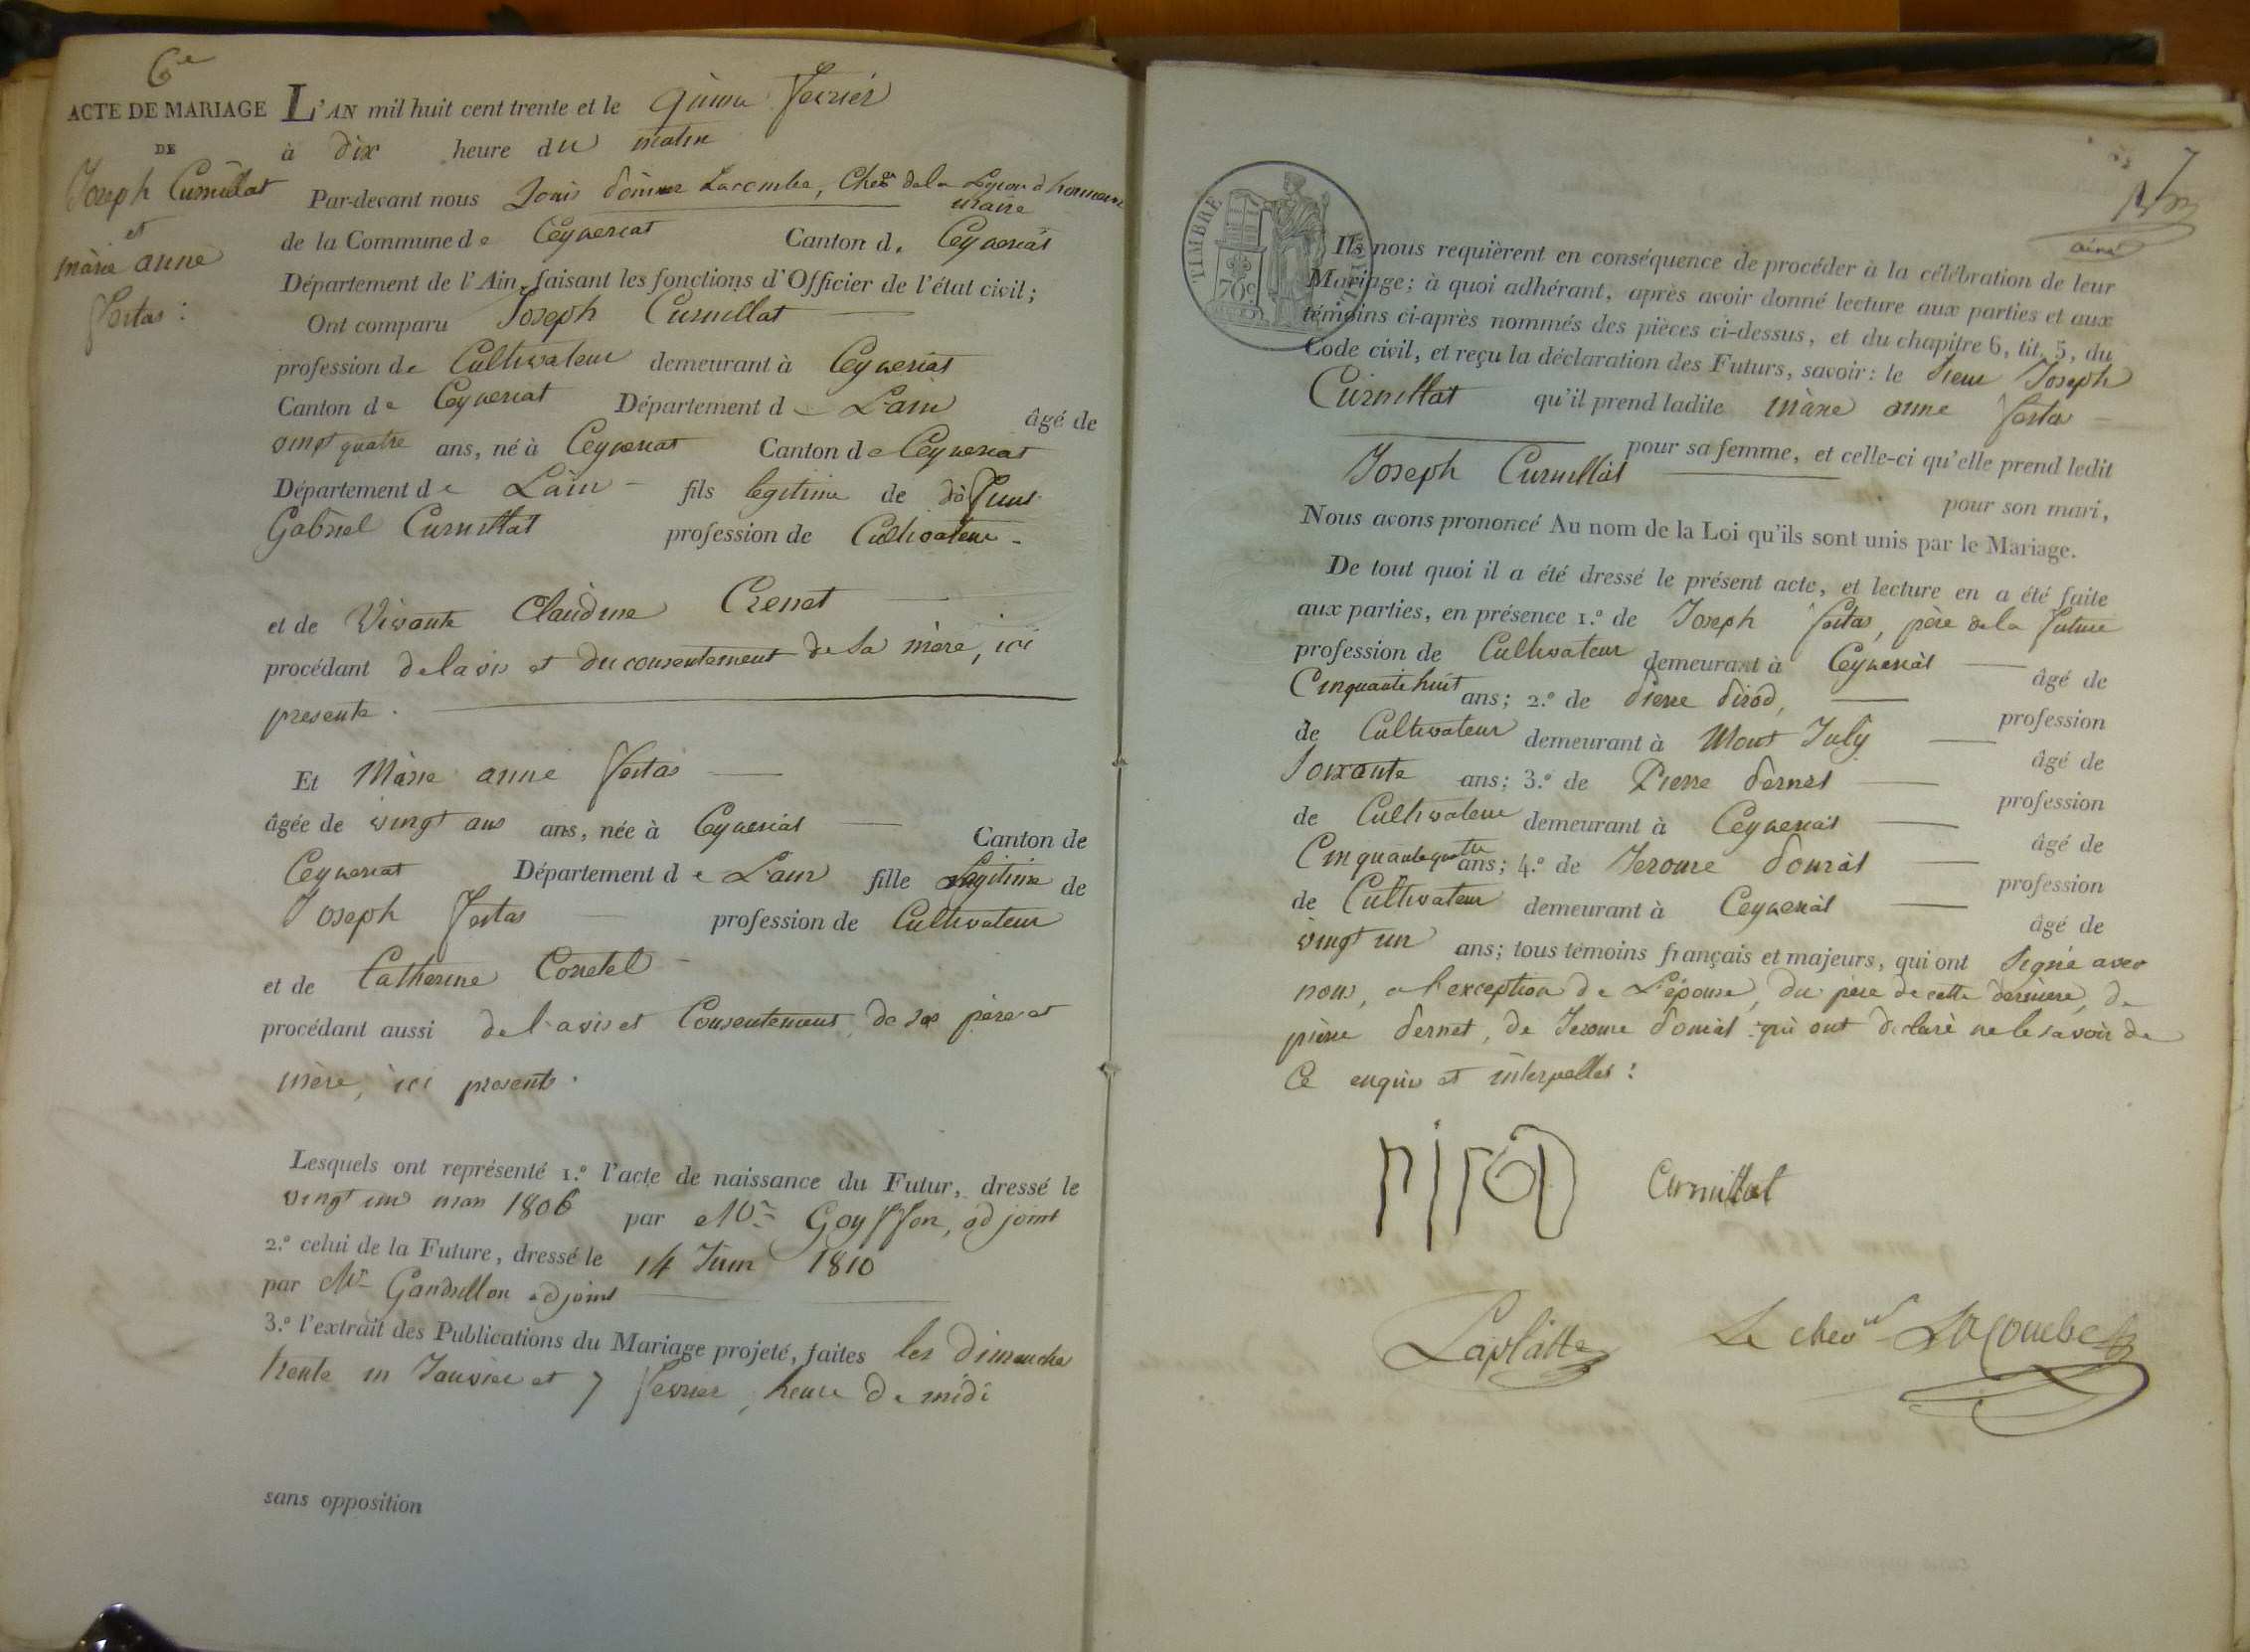 6e
ACTE DE MARIAGE
DE
Joseph Curnillat
et
marie anne
fertas :
L'AN mil huit cent trente et le quinze fevrier
à dix heure du matin
Par-devant nous Louis Lacombe, Cher de la Legion d'honneur
maire
de la Commune de Ceyzeriat Canton de Ceyzeriat
Département de l'Ain, faisant les fonctions d'Officier de l'état civil;
Ont comparu Joseph Curnillat
profession de Cultivateur demeurant à Ceyzeriat
Canton de Ceyzeriat Département de L'ain âgé de
vingt quatre ans, né à Ceyzeriat Canton de Ceyzeriat
Département de L'ain fils legitime de défunt
Gabriel Curnillat profession de Cultivateur
et de Vivante Claudine Crenet
procédant de l'avis et du consentement de sa mère, ici
presente.
Et Marie anne fertas
âgée de vingt ans ans, née à Ceyzeriat Canton de
Ceyzeriat Département de L'ain fille legitime de
Joseph fertas profession de Cultivateur
et de Catherine Corretel
procédant aussi de l'avis et Consentement de ses père et
mère, ici presents.
Lesquels ont représenté 1.º l'acte de naissance du Futur, dressé le
vingt un mars 1806 par Mr Goyffon, adjoint
2.º celui de la Future, dressé le 14 Juin 1810
par Mr Gandrillon adjoint
3.º l'extrait des Publications du Mariage projeté, faites les dimanches
trente un Janvier et 7 fevrier, heure de midi
sans opposition
7
ainé
TIMBRE
70c
Ils nous requièrent en conséquence de procéder à la célébration de leur
Mariage; à quoi adhérant, après avoir donné lecture aux parties et aux
témoins ci-après nommés des pièces ci-dessus, et du chapitre 6, tit. 5, du
Code civil, et reçu la déclaration des Futurs, savoir: le sieur Joseph
Curnillat qu'il prend ladite marie anne fertas
pour sa femme, et celle-ci qu'elle prend ledit
Joseph Curnillat pour son mari,
Nous avons prononcé Au nom de la Loi qu'ils sont unis par le Mariage.
De tout quoi il a été dressé le présent acte, et lecture en a été faite
aux parties, en présence 1.º de Joseph fertas, père de la future
profession de Cultivateur demeurant à Ceyzeriat âgé de
Cinquante huit ans; 2.º de pierre pirod, profession
de Cultivateur demeurant à Mont July âgé de
Soixante ans; 3.º de Pierre pernet profession
de Cultivateur demeurant à Ceyzeriat âgé de
Cinquante quatre ans; 4.º de Jerome profession
de Cultivateur demeurant à Ceyzeriat âgé de
vingt un ans; tous témoins français et majeurs, qui ont signé avec
nous, a l'exception de L'épouse, du père de cette derniere, de
pierre pernet, de Jerome qui ont declaré ne le savoir de
Ce enquis et interpellés :
pirod Curnillat
Laplatte Le chever Lacombe